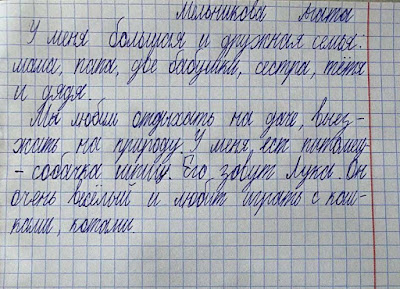 Мельникова Агаты
У меня большая и дружная семья:
мама, папа, две бабушки, сестра, тётя
и дядя.
Мы любим отдыхать на даче, выез-
жать на природу. У меня есть питомец
- собачка шпиц. Его зовут Лука. Он
очень весёлый и любит играть с кош-
ками, котами.